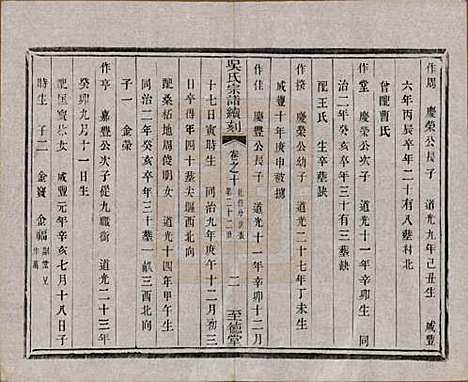 作周 慶榮公長子 道光九年己丑生 咸豐
六年丙辰卒年二十八塟村北
曾配曹氏
作堂 慶榮公次子 道光十一年辛卯生 同
治二年癸亥卒年三十有三墓缺
配王氏 生卒塟缺
作接 慶榮公幼子 道光二十七年丁未生
咸豐十年庚申被擄
作佳 慶豐公長子 道光十一年辛卯十二月
吳氏宗譜續刻 卷之十 第二十二世 二 至德堂
十七日寅時生 同治九年庚午十二月初三
日卒得年四十墓夫堰西北向
配桑柘地周俊明女 道光十四年甲午生
同治二年癸亥卒年三十塟一畝三西北向
子一 金榮
作亭 嘉豐公次子從九職銜 道光二十三年
癸卯九月十一日生
配匡寶林女 咸豐元年辛亥七月十八日子
時生 子二 金寶 金福